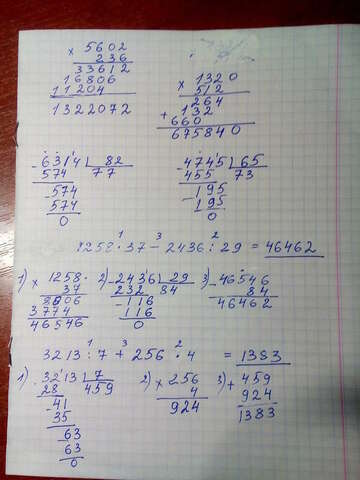 × 5602
236
33612
16806
11204
1322072
× 1320
512
264
+ 132
660
675840
- 6314 | 82
574 77
- 574
574
0
- 4745 | 65
455 73
- 195
195
0
1 3 2
1258 · 37 - 2436 : 29 = 46462
1) × 1258
37
8806
3774
46546
2) - 2436 | 29
232 84
- 116
116
0
3) - 46546
84
46462
1 3 2
3213 : 7 + 256 · 4 = 1383
1) 3213 | 7
28 459
- 41
35
63
63
0
2) × 256
4
924
3) + 459
924
1383